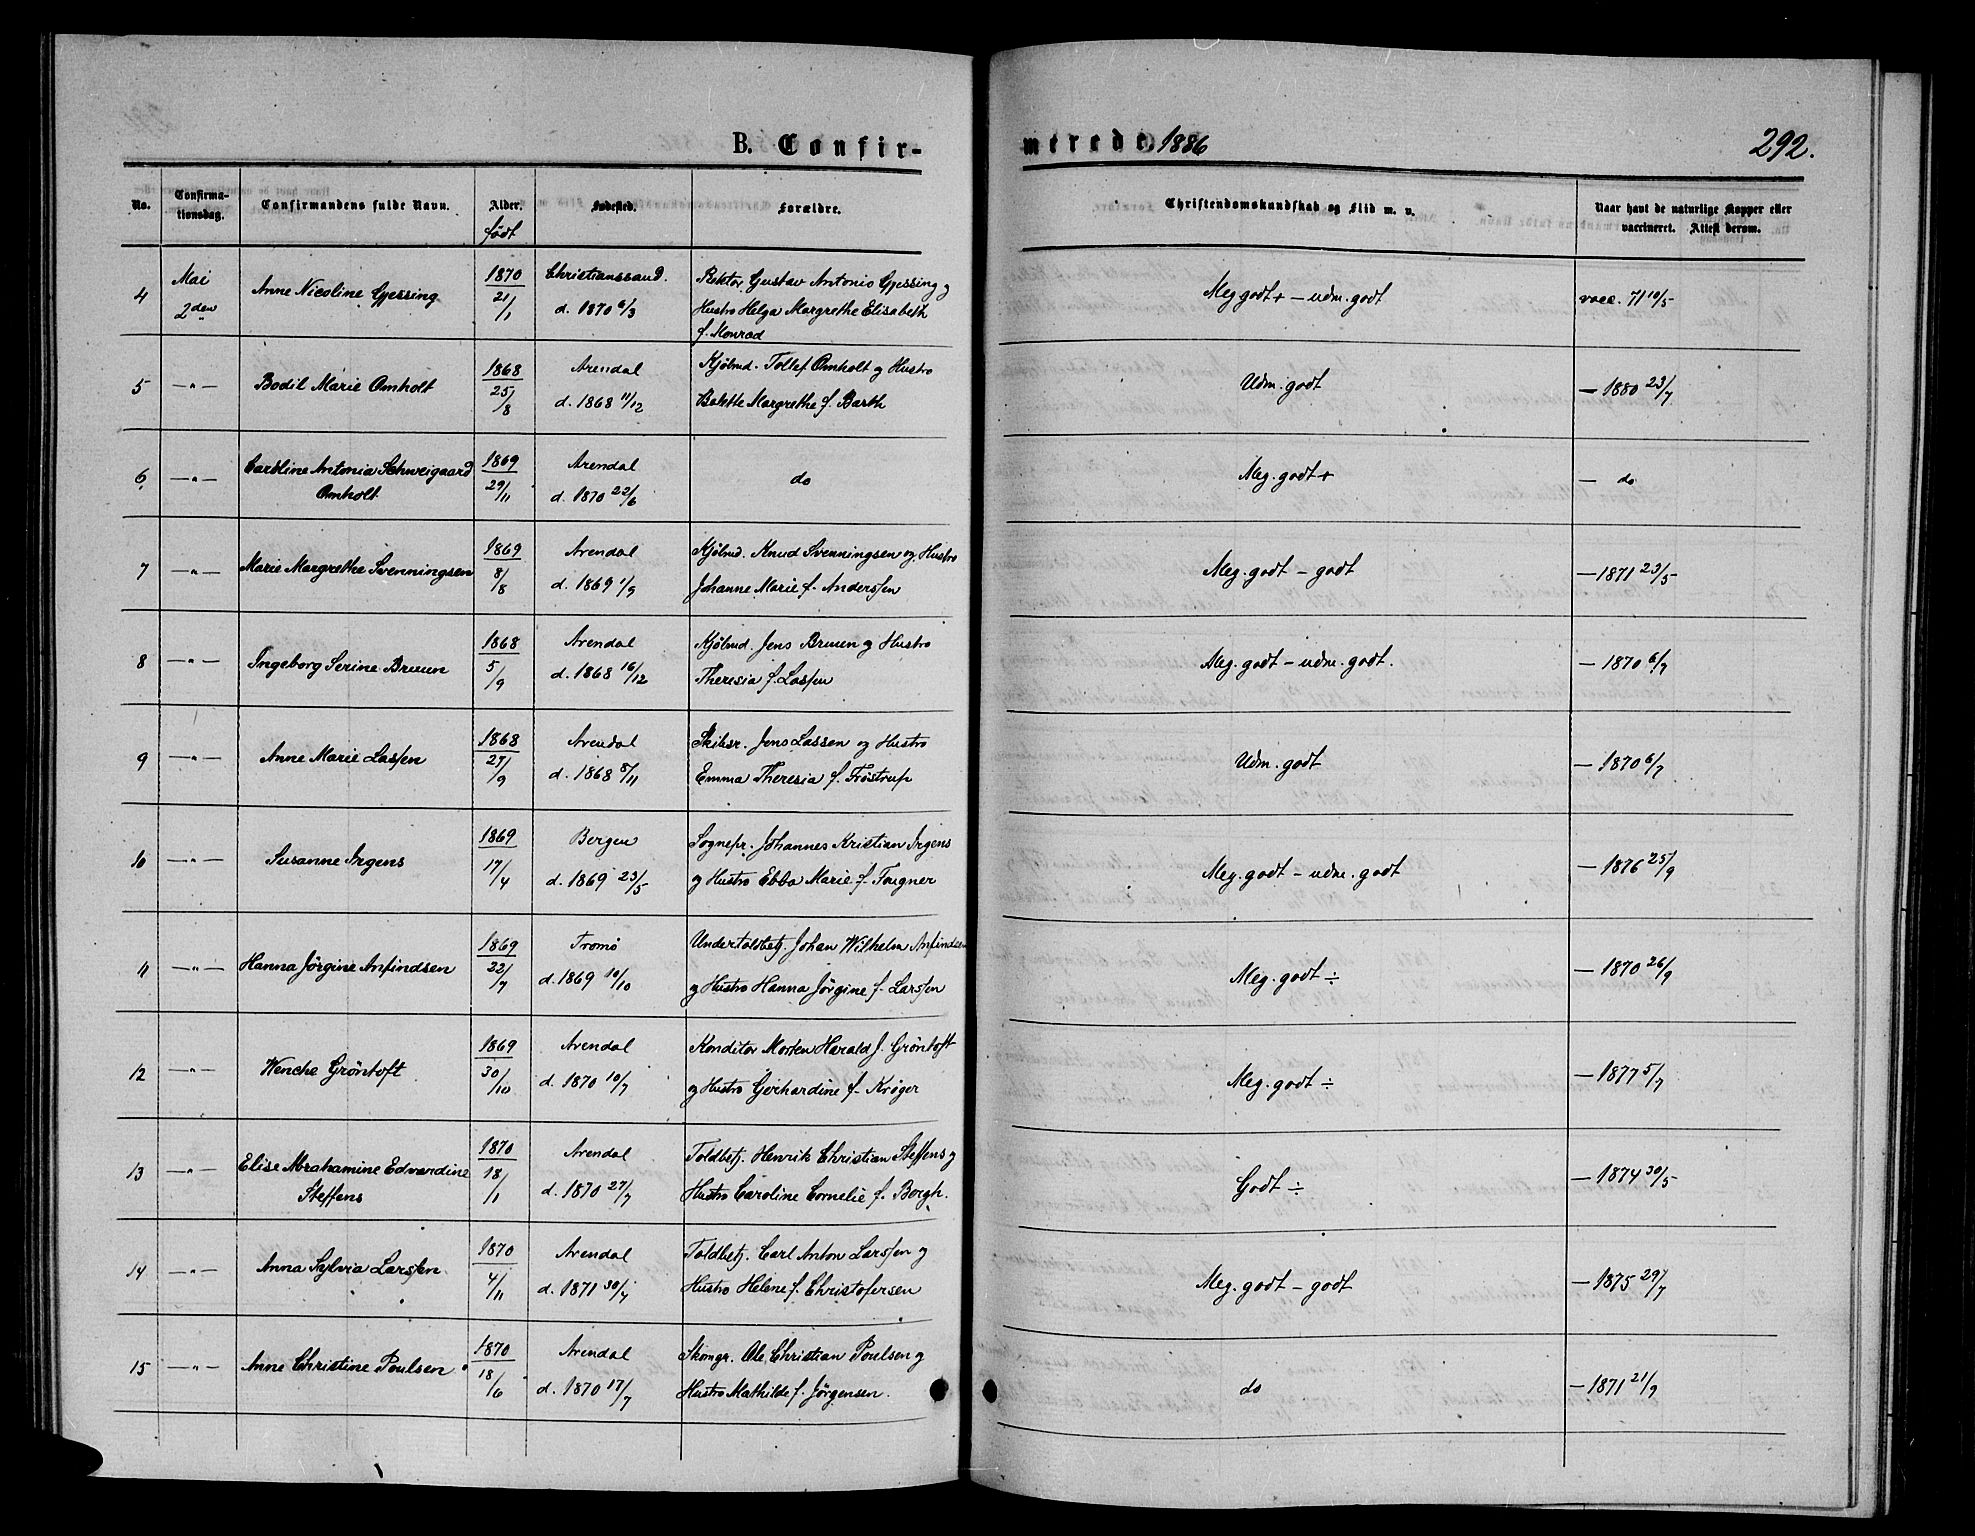 B. Confir-
merede 1886
292.
No. Confirma-tionsdag. Confirmandens fulde Navn. Alder. født Fødested. Forældre. Christendomskundskab og Flid m. v. Naar havt de naturlige Kopper eller vaccineret. Attest derom.
4 Mai 2den Anne Nicoline Gjessing 1870 21/1 Christianssand. d. 1870 6/3 Rektor Gustav Antonio Gjessing og Hustro Helga Margrethe Elisabeth f. Monrad Meg godt + – udm. godt vacc. 71 10/5
5 —"— Bodil Marie Omholt 1868 25/8 Arendal d. 1868 11/12 Kjøbmd. Tollef Omholt og Hustro Bolette Margrethe f. Barth Udm. godt — 1880 23/7
6 —"— Caroline Antonia Schweigaard Omholt 1869 29/11 Arendal d. 1870 22/6 do Meg. godt + — do
7 —"— Marie Margrethe Svenningsen 1869 8/8 Arendal d. 1869 1/9 Kjøbmd. Knud Svenningsen og Hustro Johanne Marie f. Anderssen Meg. godt – godt — 1871 23/5
8 —"— Ingeborg Serine Bruun 1868 5/9 Arendal d. 1868 16/12 Kjøbmd. Jens Bruun og Hustro Theresia f. Lassen Meg. godt – udm. godt. — 1870 6/7
9 —"— Anne Marie Lassen 1868 27/9 Arendal d. 1868 8/11 Skibsr. Jens Lassen og Hustro Emma Theresia f. Frøstrup Udm. godt — 1870 6/7
10 —"— Susanne Irgens 1869 17/4 Bergen d. 1869 23/5 Sognepr. Johannes Kristian Irgens og Hustro Ebba Marie f. Fougner Meg. godt – udm. godt — 1876 25/9
11 —"— Hanna Jörgine Anfindsen 1869 22/7 Tromö d. 1869 10/10 Undertoldbetj. Johan Wilhelm Anfindsen og Hustro Hanna Jörgine f. Larssen Meg. godt ÷ — 1870 26/9
12 —"— Wenche Gröntoft 1869 30/10 Arendal d. 1870 10/7 Konditor Morten Harald J. Gröntoft og Hustro Gerhardine f. Krøger Meg. godt ÷ — 1877 5/7
13 —"— Elise Abrahamine Edvardine Steffens 1870 18/1 Arendal d. 1870 27/7 Toldbetj. Henrik Christian Steffens og Hustro Caroline Cornelie f. Borgh. Godt ÷ — 1874 30/5
14 —"— Anna Sylvia Larssen 1870 4/11 Arendal d. 1871 30/7 Toldbetj. Carl Anton Larssen og Hustro Helene f. Christofersen Meg. godt – godt — 1875 29/7
15 —"— Anne Christine Poulsen 1870 18/6 Arendal d. 1870 17/7 Skomgr. Ole Christian Poulsen og Hustro Mathilde f. Jörgensen. do — 1871 21/9